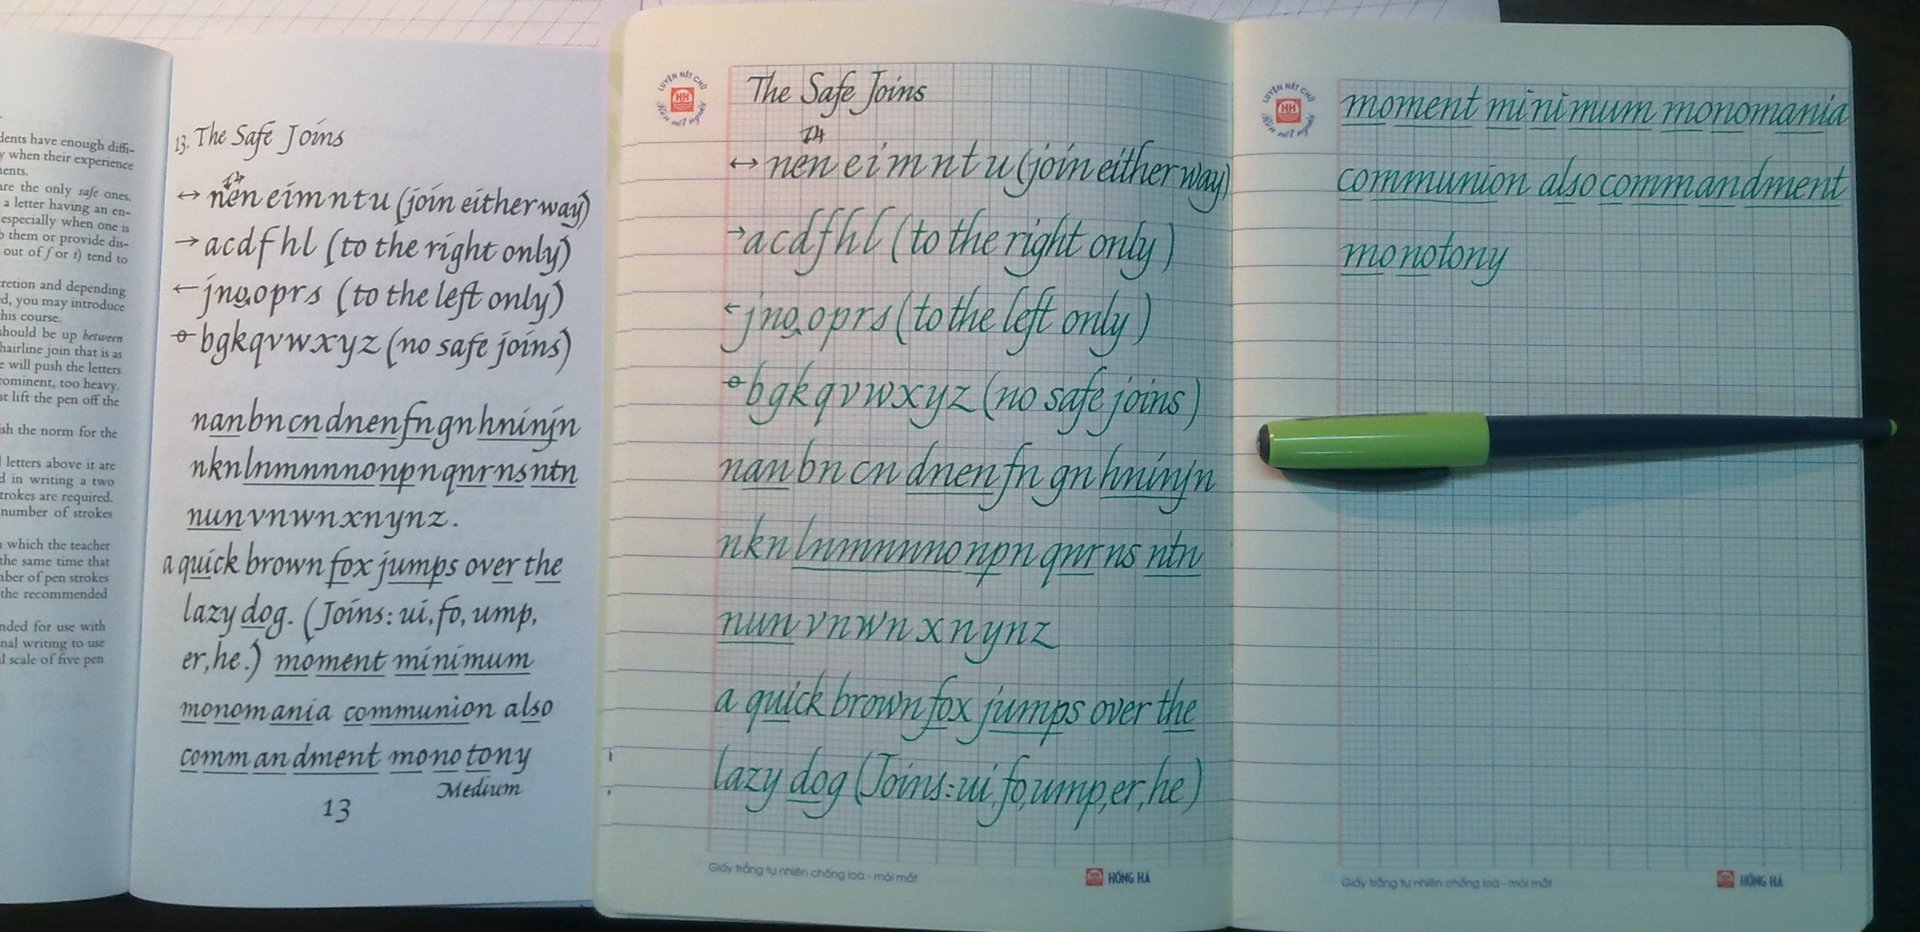 dents have enough diffi-
y when their experience
ents.
are the only safe ones.
a letter having an en-
especially when one is
b them or provide dis-
out of f or t) tend to
retion and depending
d, you may introduce
this course.
should be up between
hairline join that is as
e will push the letters
rominent, too heavy.
st lift the pen off the
ish the norm for the
letters above it are
d in writing a two
trokes are required.
number of strokes
n which the teacher
the same time that
ber of pen strokes
the recommended
nded for use with
nal writing to use
l scale of five pen
13. The Safe Joins
↔ nen e i m n t u (join either way)
→ a c d f h l (to the right only)
← j n o p r s (to the left only)
b g k q v w x y z (no safe joins)
nanbncndnenfngnhninjn
nknlnmnnnonpnqnrnsntn
nunvnwnxnynz.
a quick brown fox jumps over the
lazy dog. (Joins: ui, fo, ump,
er, he.) moment minimum
monomania communion also
commandment monotony
Medium
13
LUYỆN NÉT CHỮ
Rèn nết người
HH
The Safe Joins
↔ nen e i m n t u (join either way)
→ a c d f h l (to the right only)
← j n o p r s (to the left only)
b g k q v w x y z (no safe joins)
nanbncndnenfngnhninjn
nknlnmnnnonpnqnrnsntn
nunvnwnxnynz
a quick brown fox jumps over the
lazy dog (Joins: ui, fo, ump, er, he)
Giấy trắng tự nhiên chống loá - mỏi mắt
HỒNG HÀ
LUYỆN NÉT CHỮ
Rèn nết người
HH
moment minimum monomania
communion also commandment
monotony
Giấy trắng tự nhiên chống loá - mỏi mắt
HỒNG HÀ